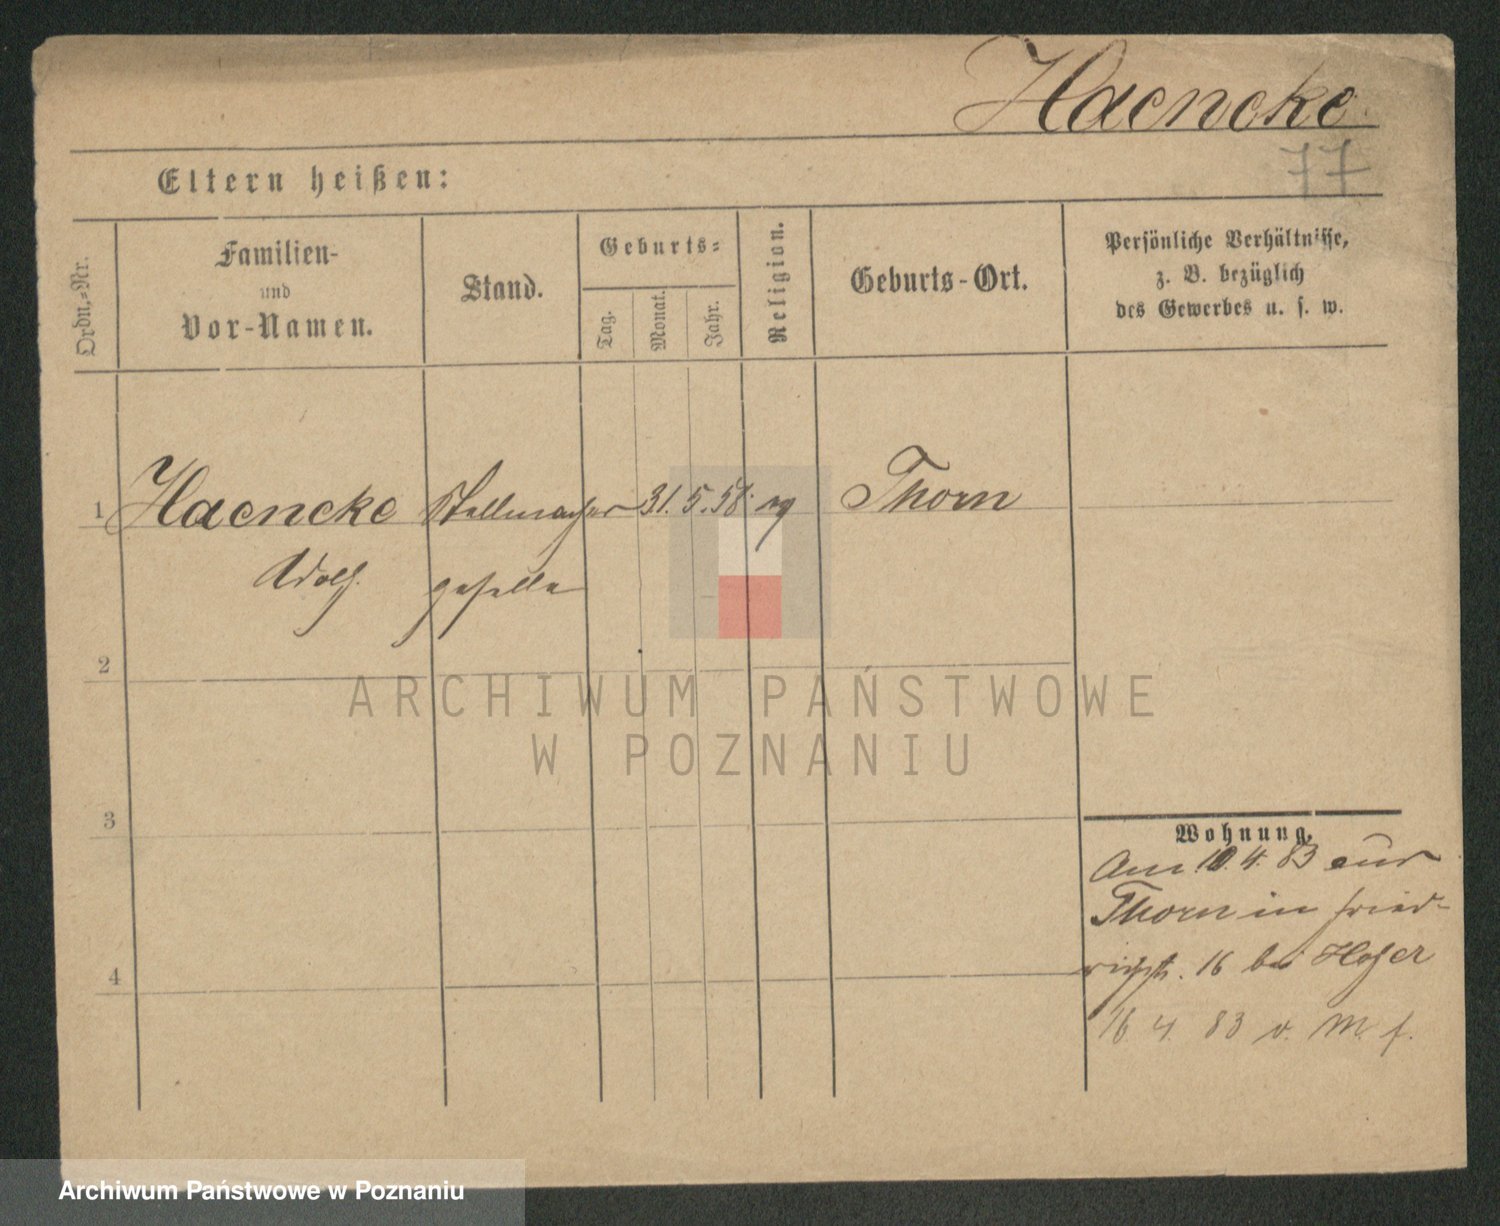 Haencke
77
Eltern heißen:
Ordn.-Nr.
Familien-
und
Vor-Namen.
Stand.
Geburts-
Tag.
Monat.
Jahr.
Religion.
Geburts-Ort.
Persönliche Verhältnisse,
z. B. bezüglich
des Gewerbes u. s. w.
1 Haencke Stellmacher 31. 5. 58. Thorn
Adolf. geselle
2
ARCHIWUM PAŃSTWOWE
W POZNANIU
3
Wohnung.
Am 10. 4. 83 aus
Thorn in Fried-
richstr. 16 bei
4
16 4. 83 v. M. f.
Archiwum Państwowe w Poznaniu